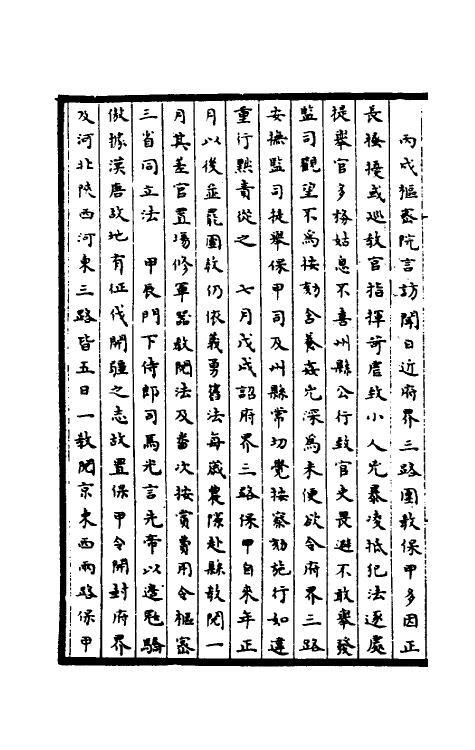 丙戌樞密院言訪聞日近府界三路團敎保甲多因正
長接擾或巡敎官指揮苛虐致小人兇暴凌抵犯法逐處
提舉官多務姑息不喜州縣公行致官吏畏避不敢舉發
監司觀望不爲按劾含養姦宄深爲未便欲令府界三路
安撫監司提舉保甲司及州縣常切覺按察劾施行如違
重行黜責從之 七月戊戌詔府界三路保甲自來年正
月以後並罷團敎仍依義勇舊法每歲農隙赴縣敎閱一
月其差官置場修軍器敎閱法及番次按賞費用令樞密
三省同立法 甲辰門下侍郎司馬光言先帝以邊𠖥驕
傲據漢唐故地有征伐開疆之志故置保甲令開封府界
及河北陝西河東三路皆五日一敎閱京東西兩路保甲